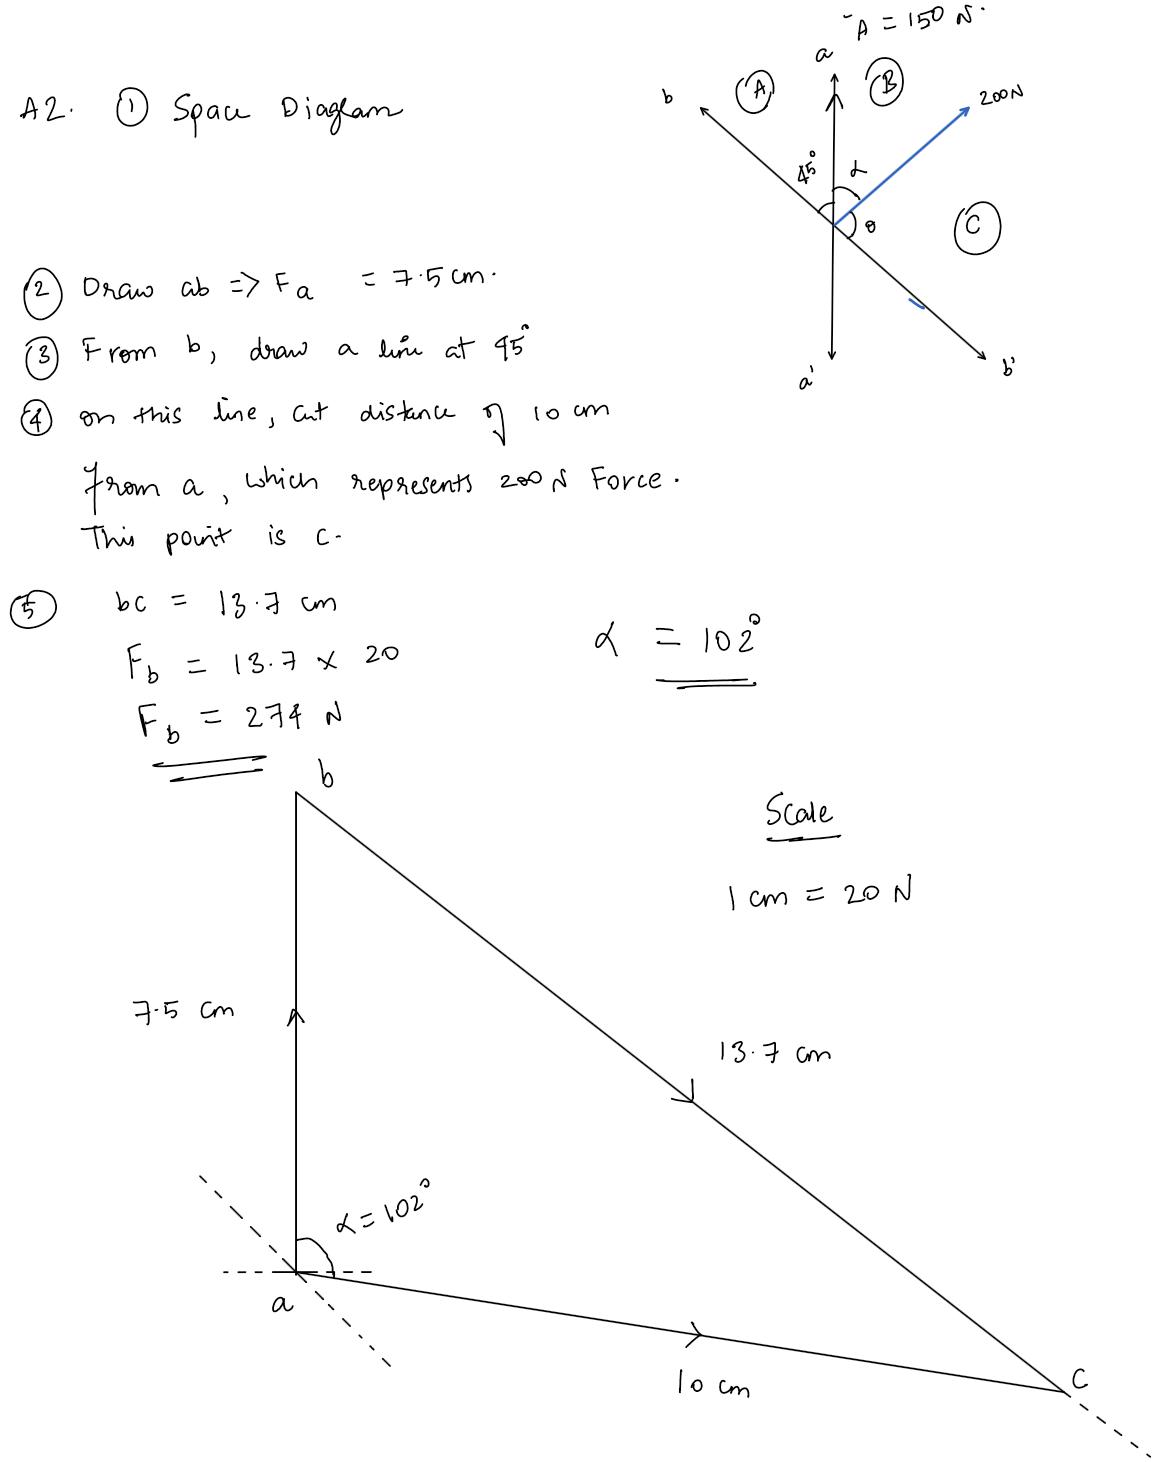 A = 150 N.
a
A
B
b
200N
A2. ① Space Diagram
45°
α
θ
C
a'
b'
② Draw ab => Fa = 7.5 cm.
③ From b, draw a line at 45°
④ on this line, cut distance of 10 cm
from a, which represents 200 N Force.
This point is c.
⑤ bc = 13.7 cm
Fb = 13.7 x 20
α = 102°
Fb = 274 N
b
Scale
1 cm = 20 N
7.5 cm
13.7 cm
α = 102°
a
10 cm
C